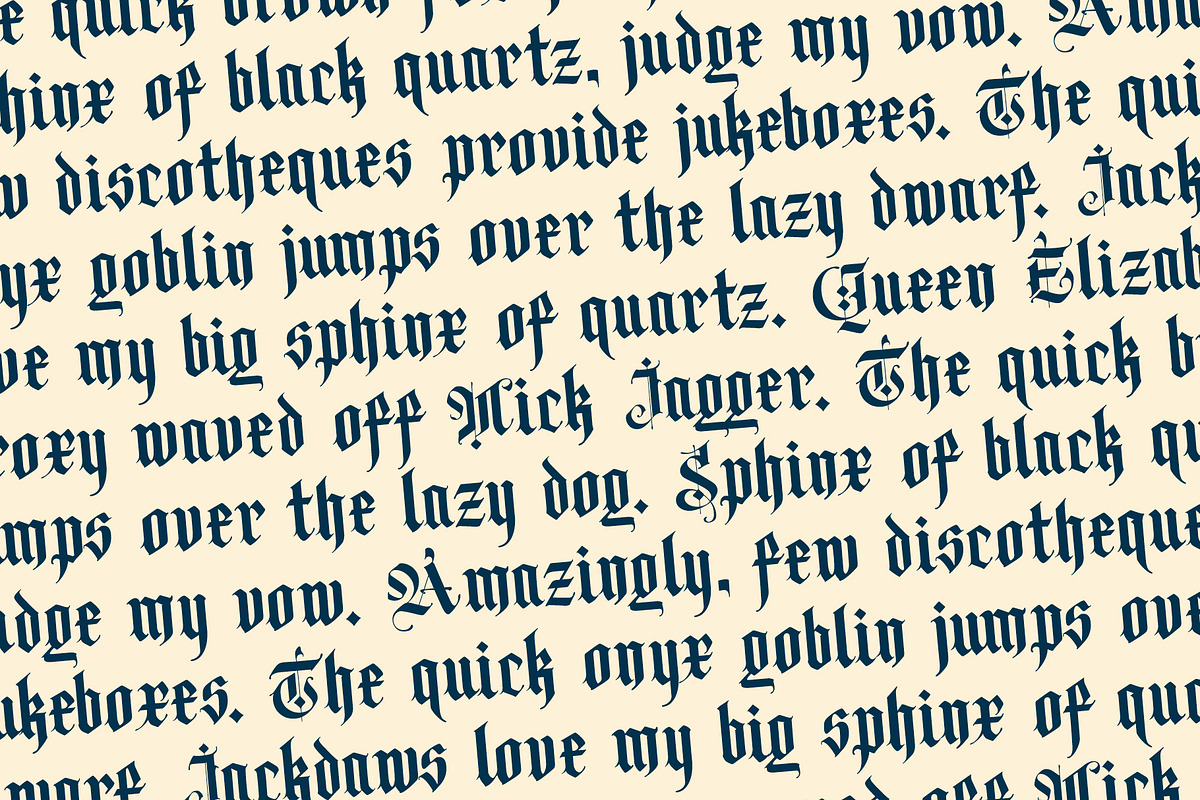 quick brown
hinx of black quartz, judge my vow. Am
w discotheques provide jukeboxes. The qui
yx goblin jumps over the lazy dwarf. Jack
ve my big sphinx of quartz. Queen Elizab
oxy waved off Mick Jagger. The quick b
mps over the lazy dog. Sphinx of black qu
udge my vow. Amazingly, few discotheque
ukeboxes. The quick onyx goblin jumps ove
warf. Jackdaws love my big sphinx of qua
off Mick